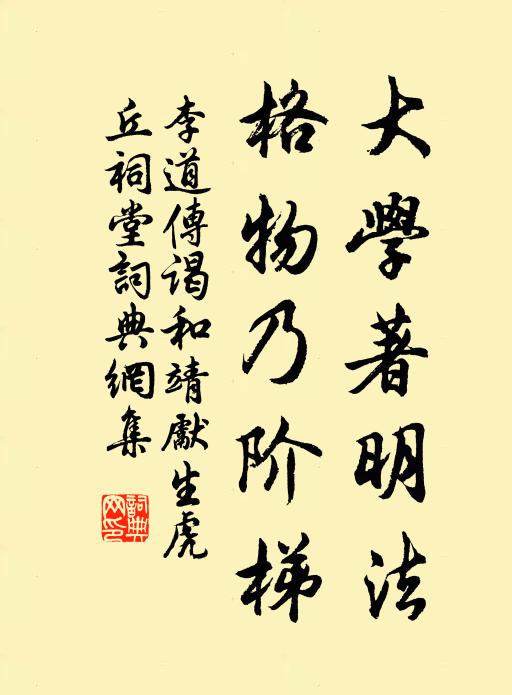 大學著明法
格物乃阶梯
李道傳谒和靖獻生虎
丘祠堂詞典網集
詞典网印